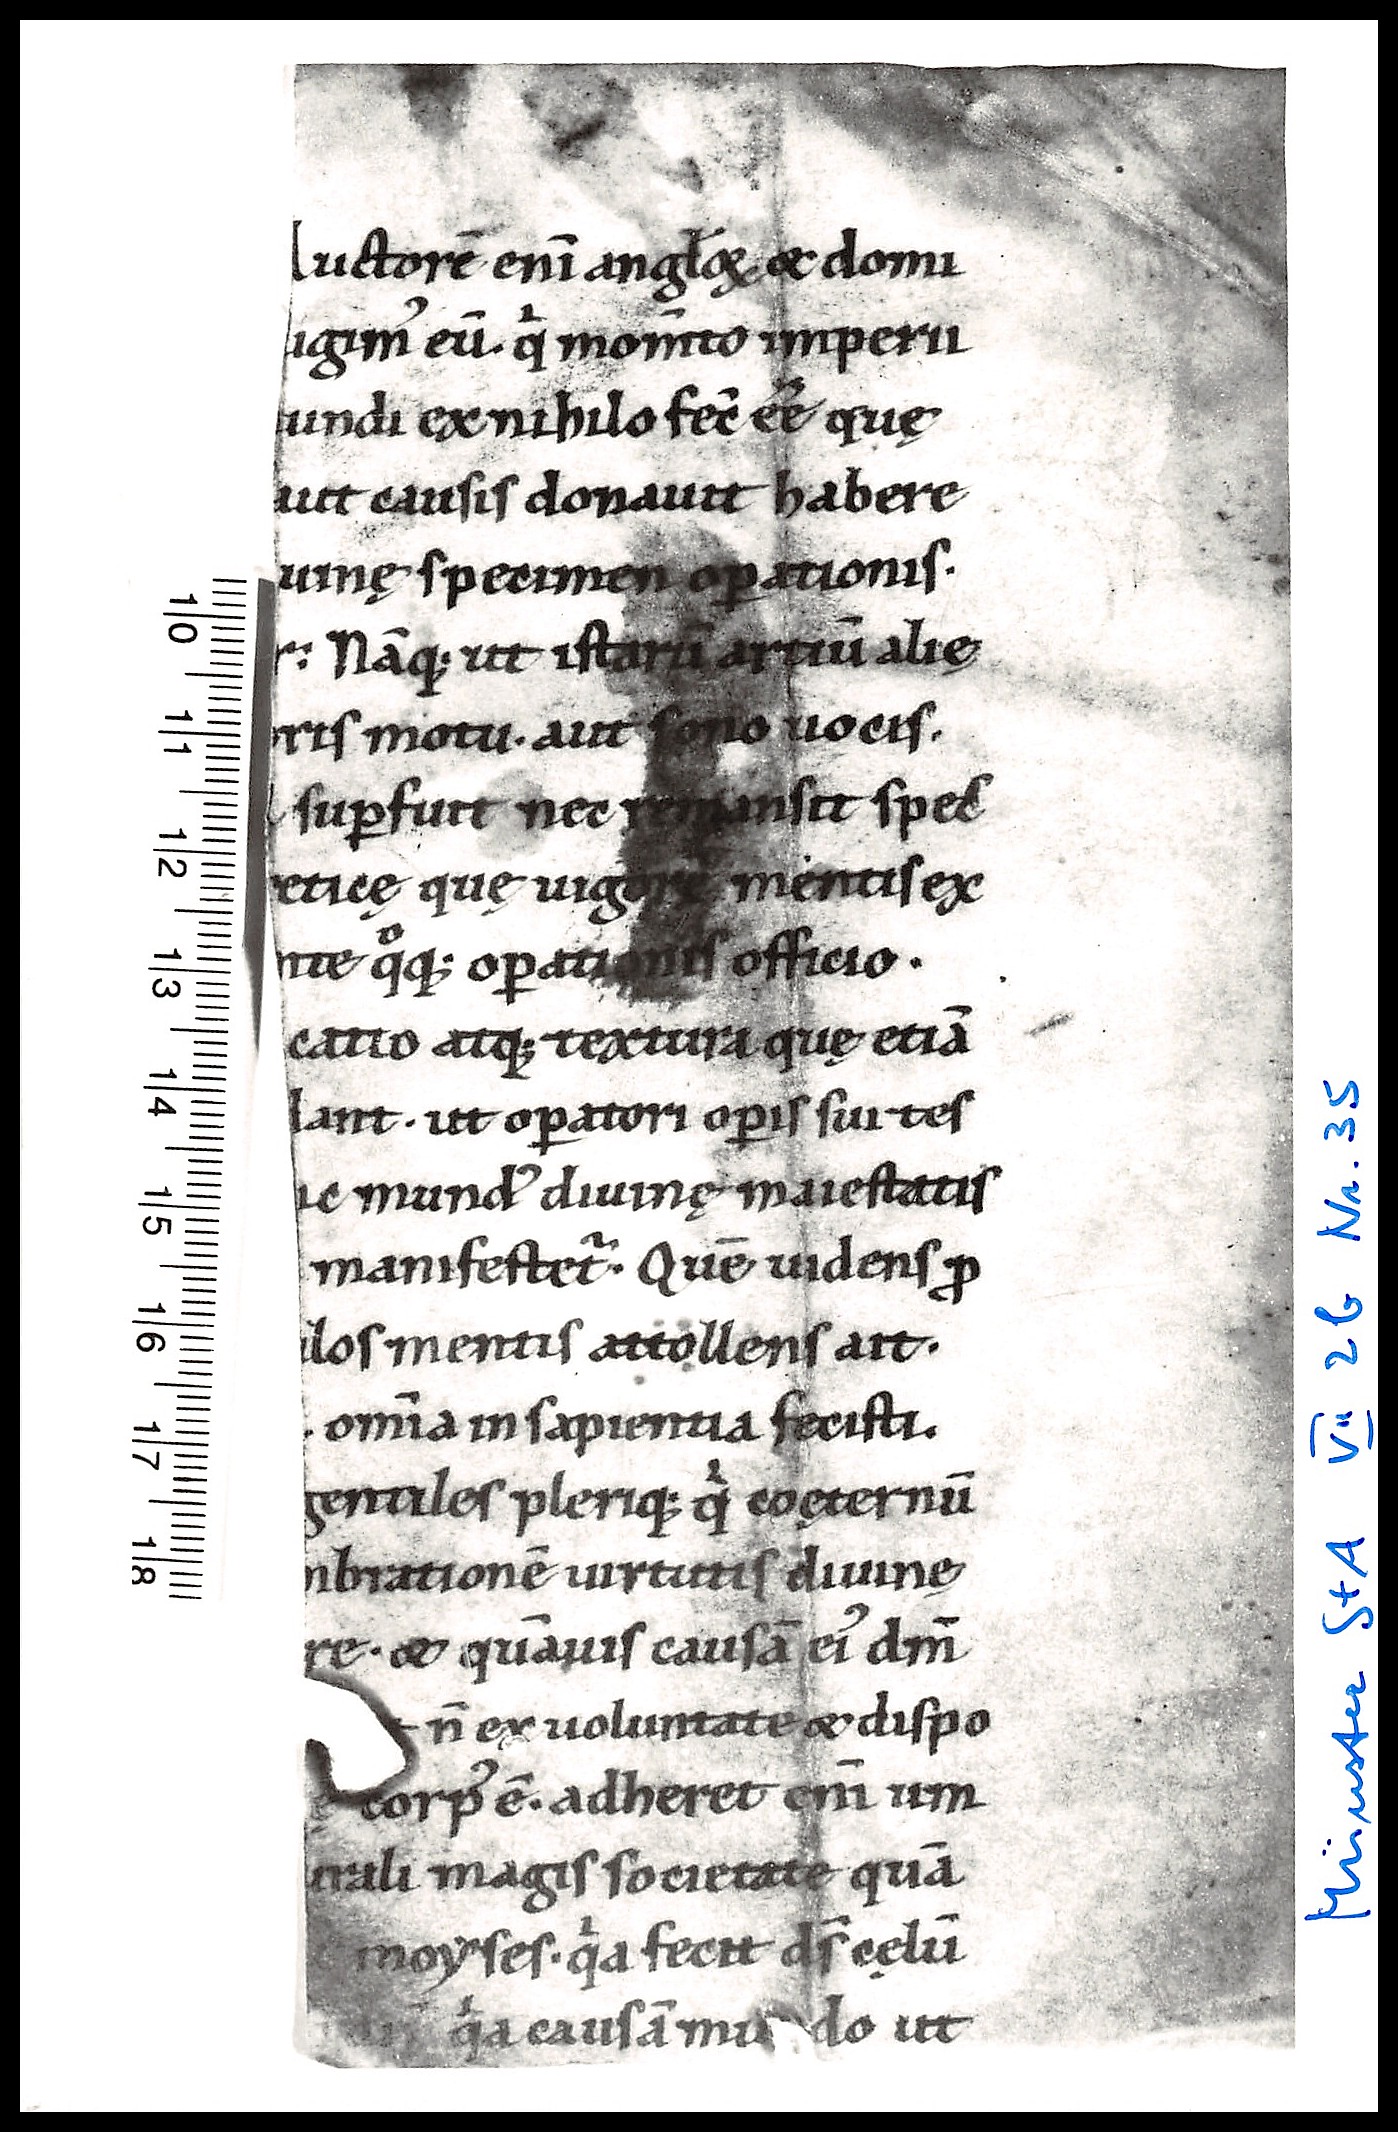 Auctorē enī angl̄oꝝ & domi
igim᷒ eū. qͥ mom̄to imperii
undi ex nihilo fec̄ eē᷒ quę
uit causis donauit habere
uinę specimen oꝑationis.
r: Nāq; ut istarū artiū alię
oris motu. aut sono uocis.
suꝑfuit nec remansit spec̄
eticę quę uigore mentis ex
nte qͦq; oꝑationis officio.
catio atq; textura quę etiā
lant. ut oꝑatori oꝑis sui tes
ic mund᷒ diuinę maiestatis
manifestet᷑. Quē uidens ꝓ
ulos mentis attollens ait.
. om̄ia in sapientia fecisti.
gentiles pleriq; qͥ coęternū
mbrationē uirtutis diuinę
re. & quāuis causā ei᷒ dm̄
n̄ ex uoluntate & dispo
corp᷒ ē. adheret enī um
urali magis societate quā
moyses. qͥa fecit ds̄ cęlū
qͥa causā mu do ut
10 11 12 13 14 15 16 17 18
Münster StA VII 2b Nr. 35